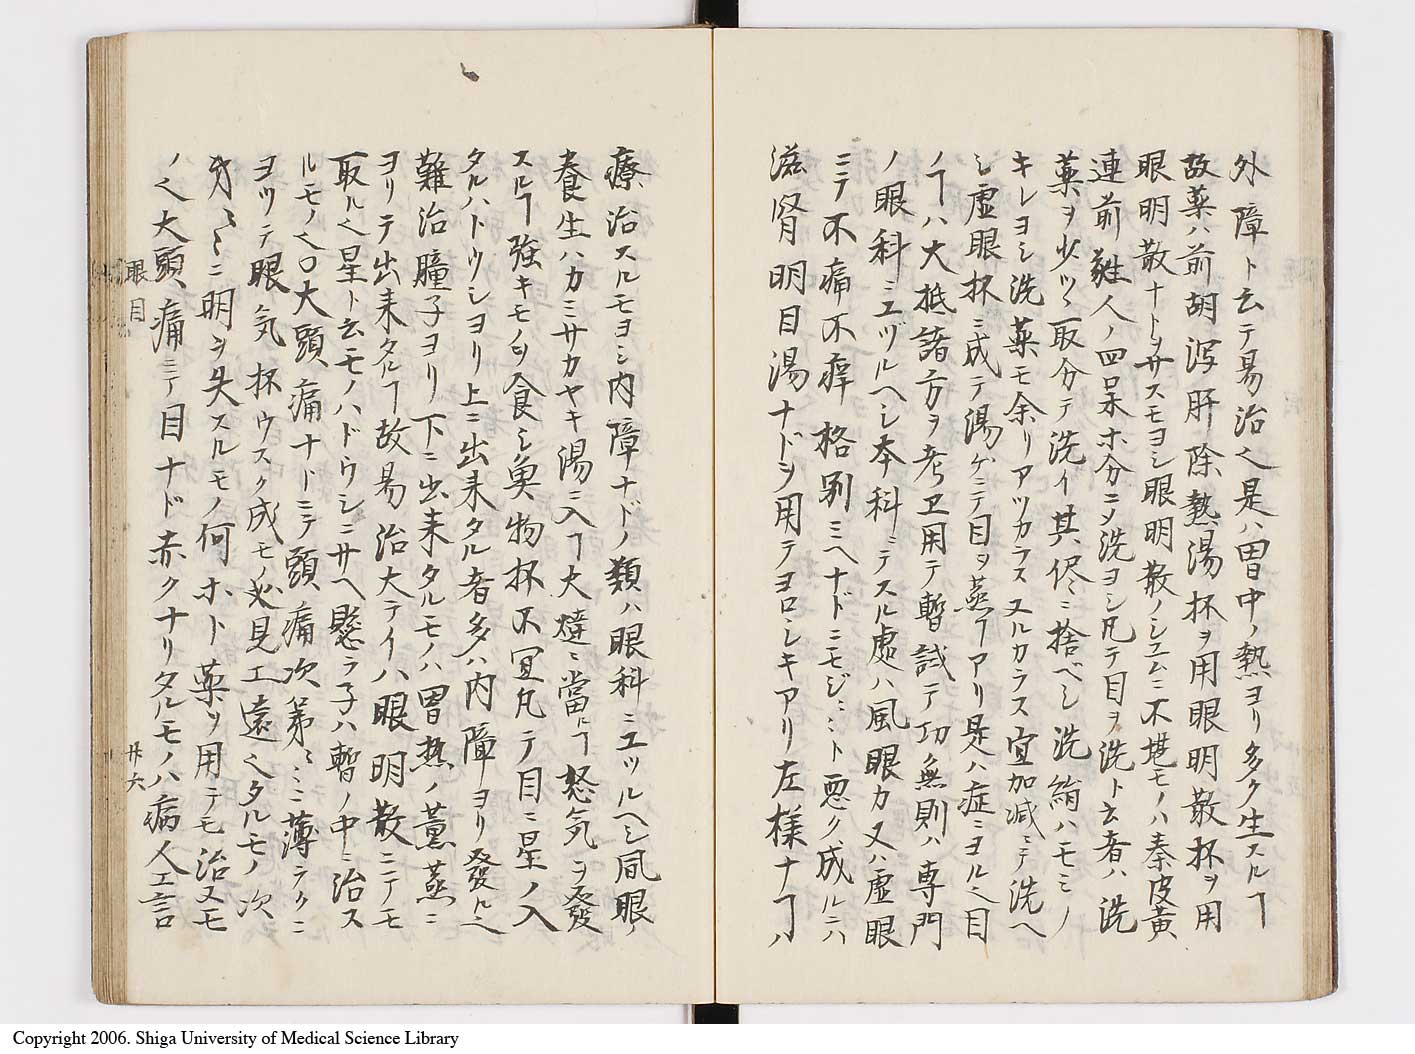 外障ト云テ易治也是ハ胃中ノ熱ヨリ多ク生スルヿ
故薬ハ前胡瀉肝除熱湯杯ヲ用眼明散杯ヲ用
眼明散ナトヲサスモヨシ眼明散ノシエムニ不堪モノハ秦皮黄
連前 人ノ四 ホ分ニメ洗ヨシ凡テ目ヲ洗ト云者ハ洗
薬ヲ少ツヽ取分テ洗イ其侭ニ捨ベシ洗絹ハモミノ
キレヨシ洗薬モ余リアツカラスヌルカラス宜加減ニテ洗ヘ
シ虚眼杯ニ成テ湯ゲニテ目ヲ蒸ヿアリ是ハ症ニヨル也目
ノヿハ大抵諸方ヲ考ヱ用テ暫試テ功無則ハ専門
ノ眼科ニユヅルヘシ本科ニテスル處ハ風眼カ又ハ虚眼
ニテ不痛不痒格別ミヘナドニモジミヽト悪ク成ルニハ
滋腎明目湯ナドヲ用テヨロシキアリ左様ナヿハ
療治スルモヨシ内障ナドノ類ハ眼科ニユツルヘシ風眼ノ
養生ハカミサカヤキ湯ニ入ヿ大燵ニ當ルヿ怒気ヲ發
スルヿ強キモノヲ食シ魚物杯不宜凡テ目ニ星ノ入
タルハトウシヨリ上ニ出来タル者多ハ内障ヨリ發ル也
難治瞳子ヨリ下ニ出来タルモノハ胃熱ノ薫蒸ニ
ヨリテ出来タルヿ故易治大テイハ眼明散ニテモ
取ル也星ト云モノハドウシニサヘ懸ラ子ハ暫ノ中ニ治ス
ルモノ也〇大頭痛ナドニテ頭痛次第ミニ薄ラクニ
ヨツテ眼気杯ウスク成モノ必見エ遠也タルモノ次
第ミニ明ヲ失スルモノ何ホト薬ヲ用テモ治又モ
ノ也大頭痛ニテ目ナド赤クナリタルモノハ病人エ言
眼目
廾六
Copyright 2006. Shiga University of Medical Science Library